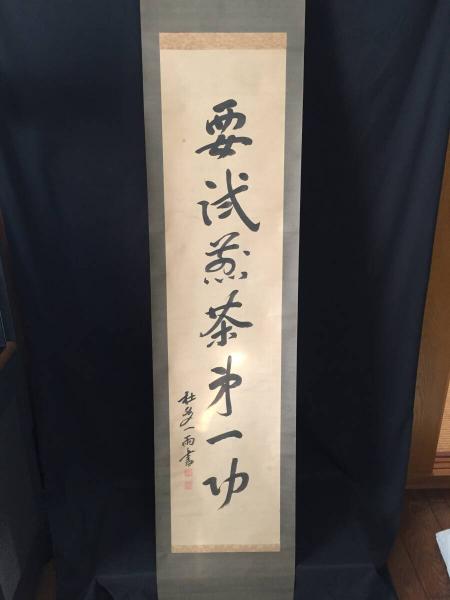 要試煎茶第一功
杜多一雨書